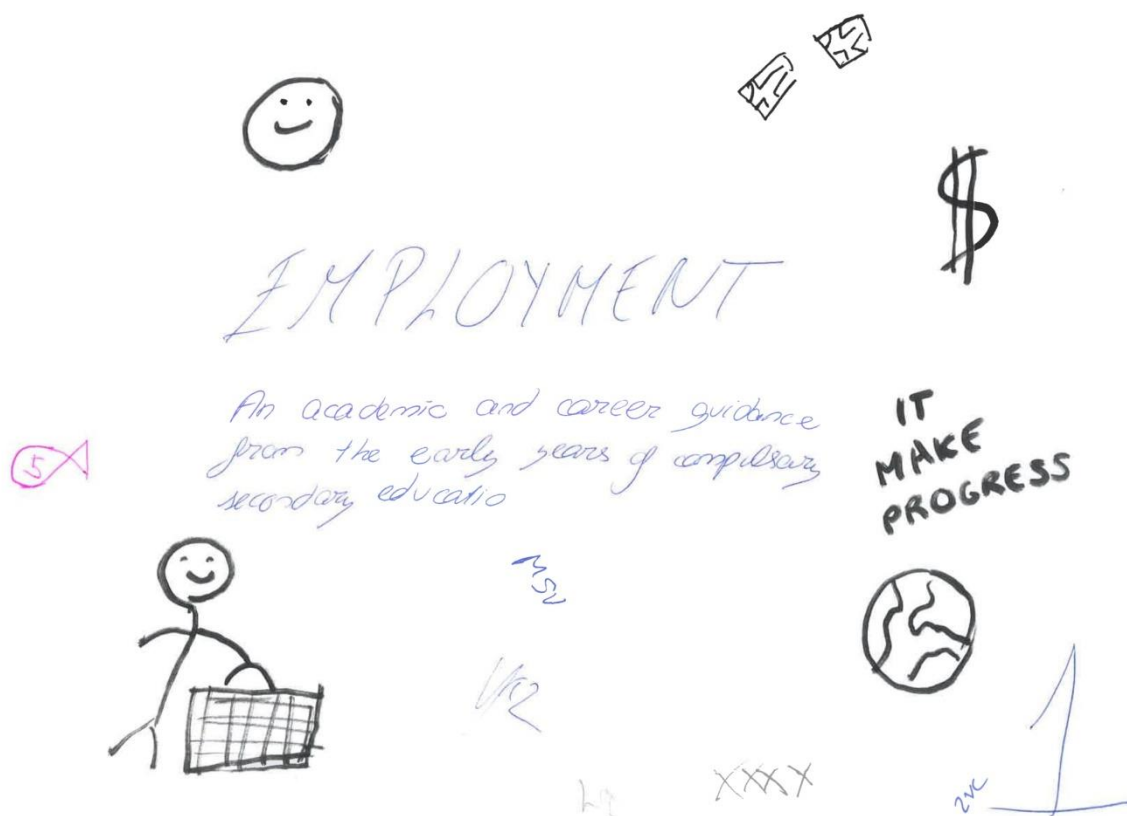 $
EMPLOYMENT
An academic and career guidance
from the early years of compulsary
secondary educatio
IT
MAKE
PROGRESS
5
MSV
XXXX
1